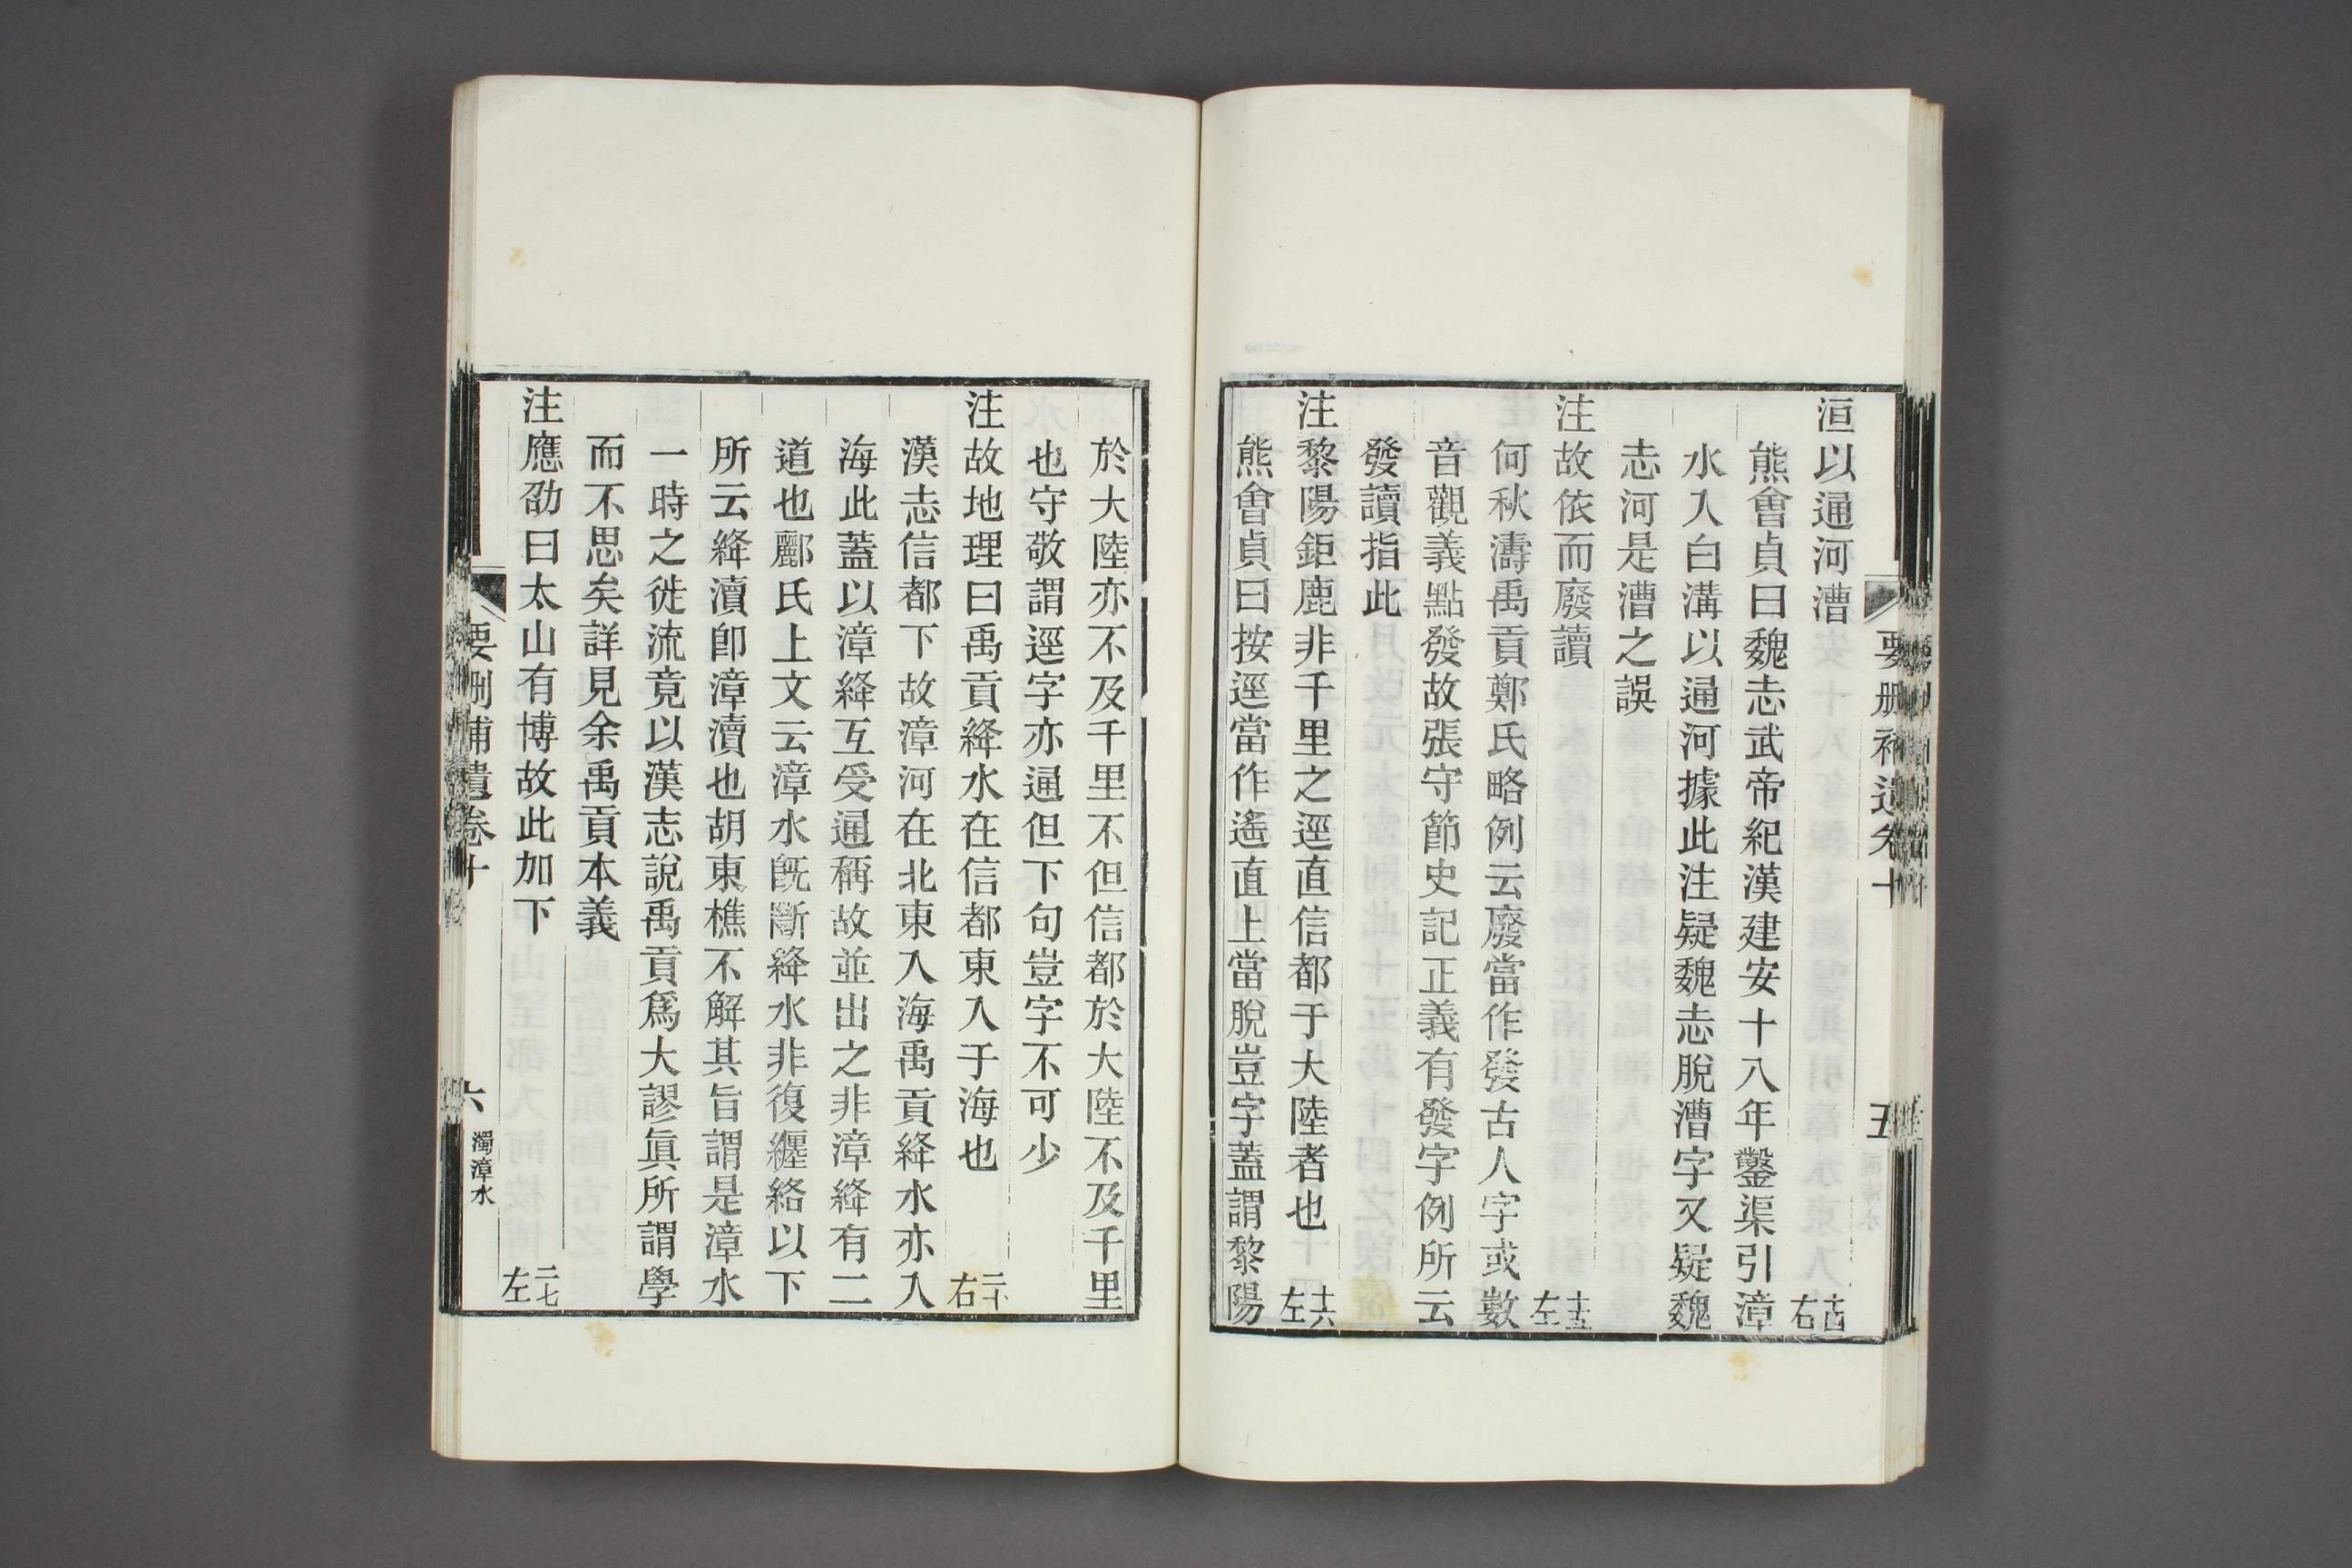 洹以通河漕 十四右
熊會貞曰魏志武帝紀漢建安十八年鑿渠引漳
水入白溝以通河據此注疑魏志脫漕字又疑魏
志河是漕之誤
注故依而廢讀 十五左
何秋濤禹貢鄭氏略例云廢當作發古人字或數
音觀義點發故張守節史記正義有發字例所云
發讀指此
注黎陽鉅鹿非千里之逕直信都于大陸者也 十六左
熊會貞曰按逕當作遙直上當脫豈字蓋謂黎陽
要刪補遺卷十
五
於大陸亦不及千里不但信都於大陸不及千里
也守敬謂逕字亦通但下句豈字不可少
注故地理曰禹貢絳水在信都東入于海也 二十右
漢志信都下故漳河在北東入海禹貢絳水亦入
海此蓋以漳絳互受通稱故並出之非漳絳有二
道也酈氏上文云漳水旣斷絳水非復纒絡以下
所云絳瀆卽漳瀆也胡東樵不解其旨謂是漳水
一時之徙流竟以漢志說禹貢爲大謬眞所謂學
而不思矣詳見余禹貢本義
注應劭曰太山有博故此加下 二七左
要刪補遺卷十
六
濁漳水